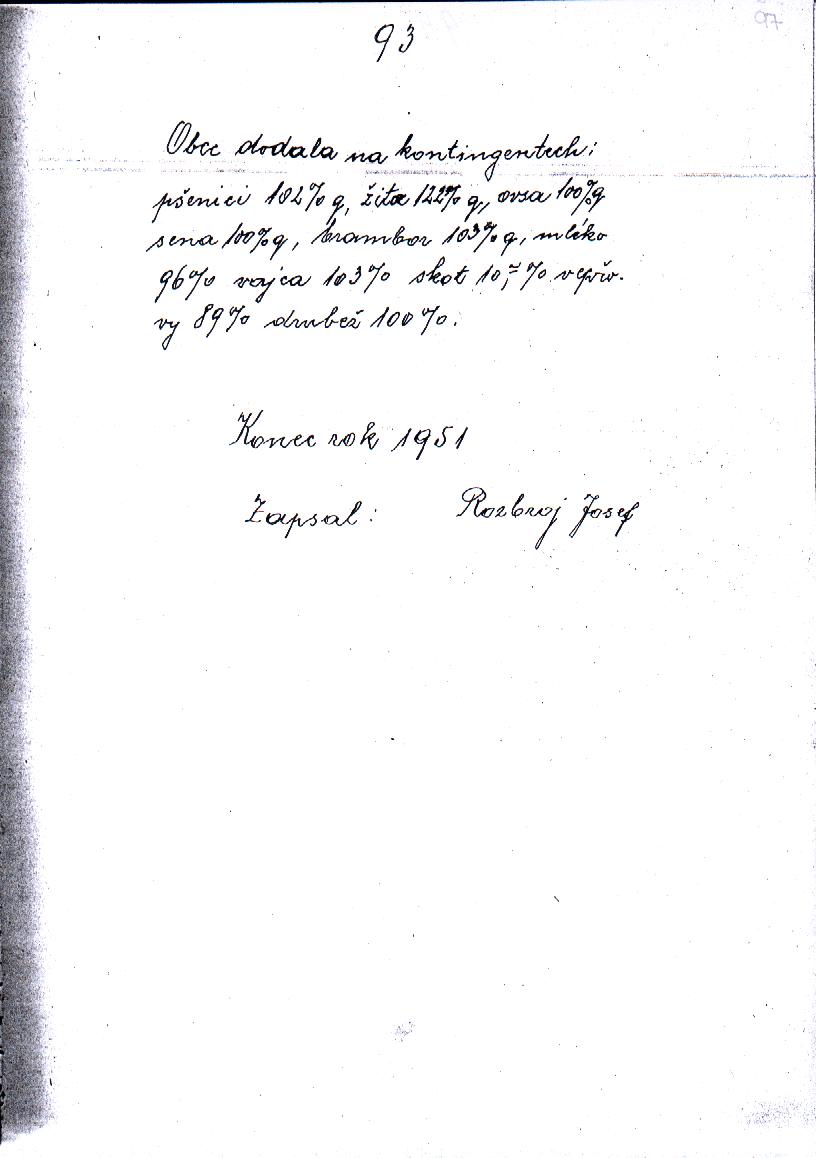 97
93
Obec dodala na kontingentech:
pšenici 102% q, žita 122% q, ovsa 100% q
sena 100% q, brambor 103% q, mléko
96% vajca 103% skot % vepřo-
vy 89% drubež 100%.
Konec rok 1951
Zapsal: Rozbroj Josef